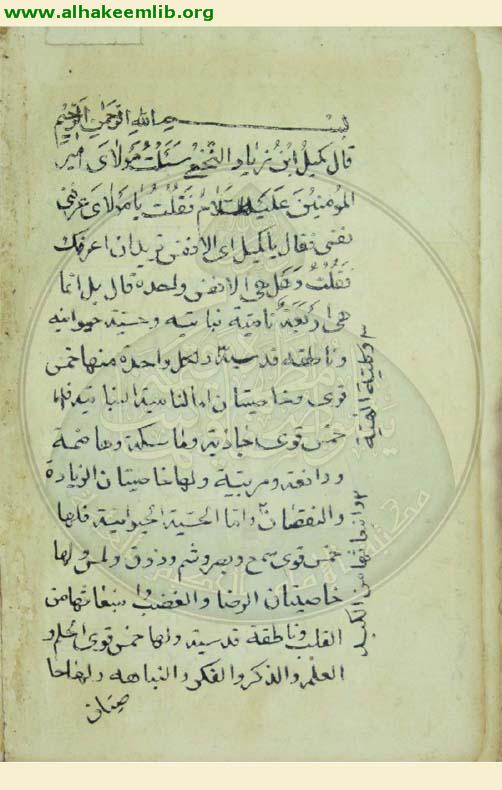 www.alhakeemlib.org
بسم الله الرحمن الرحيم
قال كميل ابن زياد النخعي سئلت مولاى امير
المؤمنين عليه السلام فقلت يا مولاى عرفنى
نفسى فقال يا كميل اى الانفس تريد ان اعرفك
فقلت وهل هى الانفس واحدة قال بل انما
هى اربعة نامية نباتيه وحسية حيوانيه
وناطقه قدسية ولكل واحدة منها خمس
قوى وخاصيتان اما النامية النباتيه فلها
خمس قوى جاذبة وماسكة وهاضمة
ودافعة ومربية ولها خاصيتان الزيادة
والنقصان واما الحسية الحيوانية فلها
خمس قوى سمع وبصر وشم وذوق ولمس ولها
خاصيتان الرضا والغضب وانبعاثها من
القلب وناطقة قدسية ولها خمس قوى الحلم و
العلم والذكر والفكر والنباهه ولها خا
صيتان
وكلية الهية
وانبعاثها من الكبد